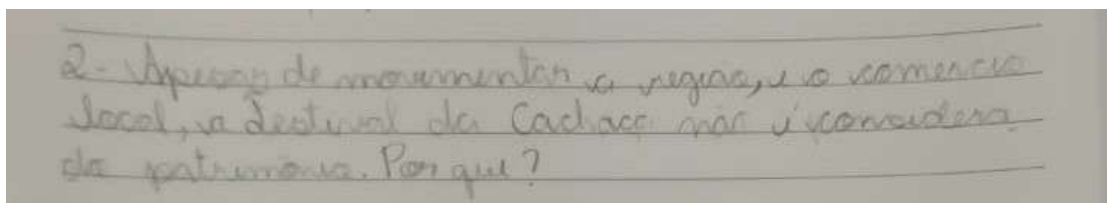 2- Apesar de movimentar a região, e o comercio
local, o Festival da Cachaça não é considera
do patrimônio. Por que?